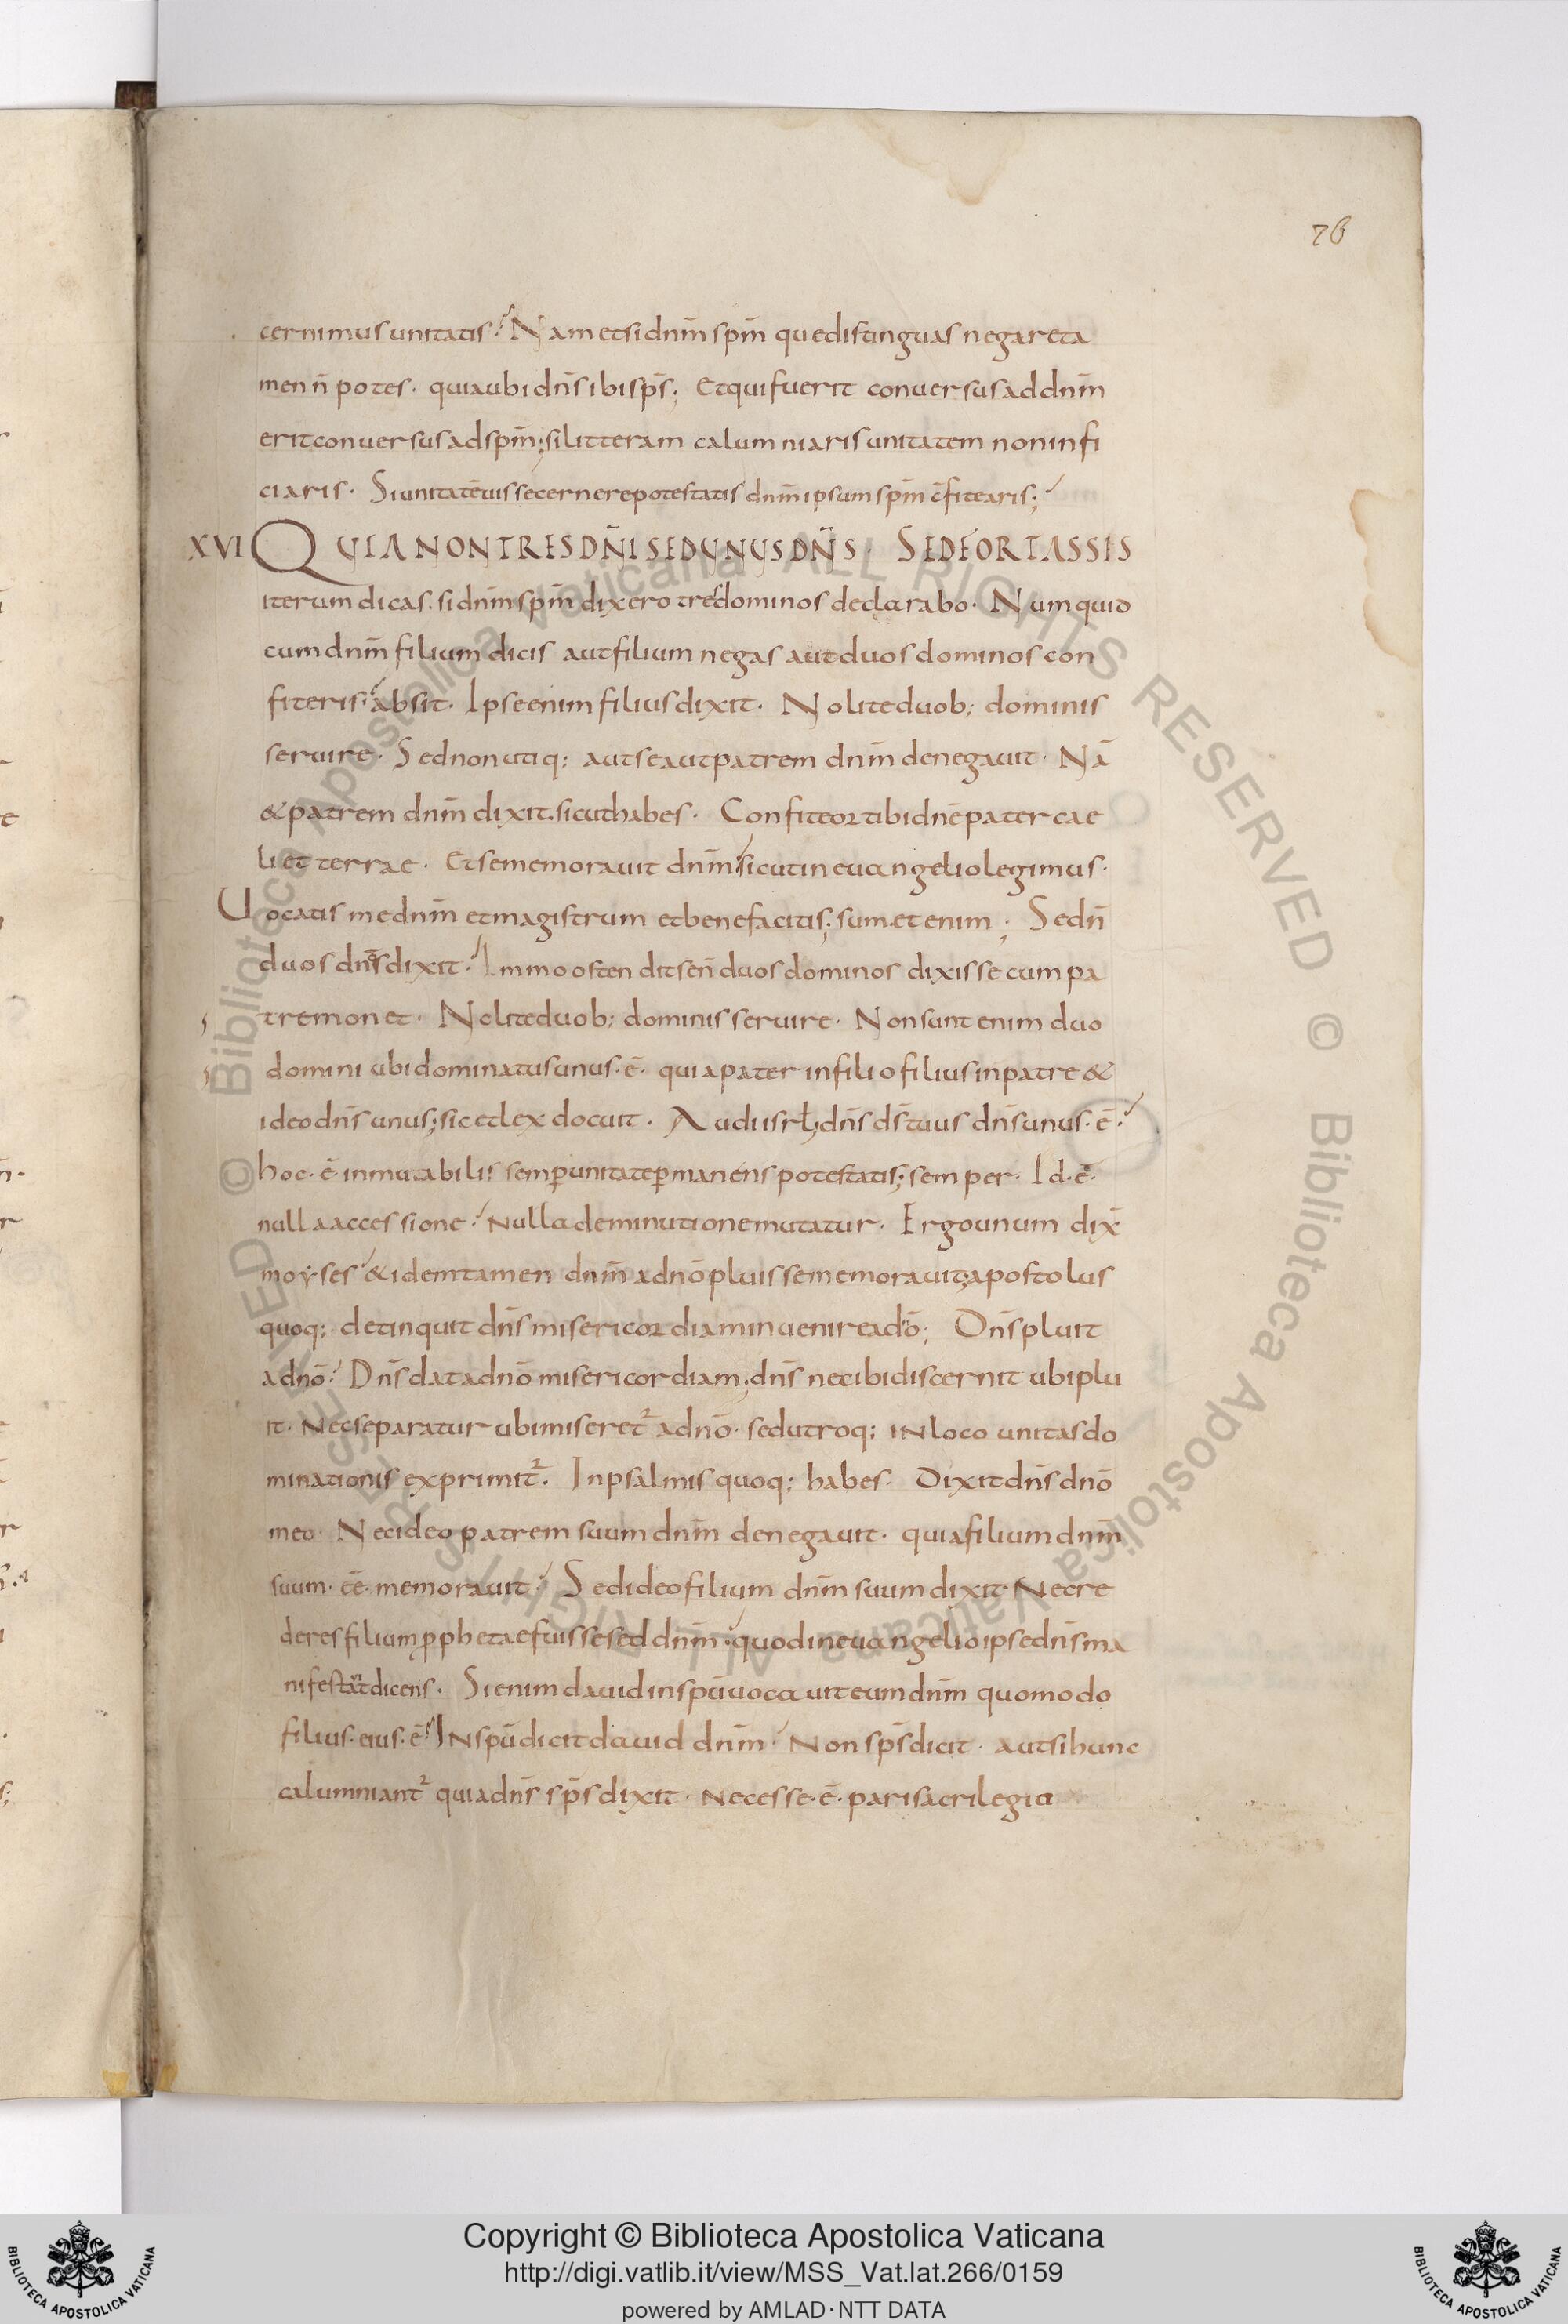 76
cernimus unitatis. Nam etsi dnm̄ spm̄ que distinguas negare ta
men n̄ potes. quia ubi dn̄s ibi sp̄s; Et qui fuerit conuersus ad dnm̄
erit conuersus ad spm̄; si litteram calumniaris unitatem non infi
ciaris. Si unitatē uis secernere potestatis dnm̄ ipsum spm̄ c̄fitearis;
XVI QUIA NON TRES DN̄I SED UNUS DN̄S. SED FORTASSIS
iterum dicas. si dnm̄ spm̄ dixero tres dominos declarabo. Numquid
cum dnm̄ filium dicis aut filium negas aut duos dominos con
fiteris? absit. Ipse enim filius dixit. Nolite duob; dominis
seruire. Sed non utiq; aut se aut patrem dnm̄ denegauit. Nā
& patrem dnm̄ dixit. sicut habes. Confiteor tibi dnē pater cae
li et terrae. Et se memorauit dnm̄ sicut in euangelio legimus.
Uocatis me dnm̄ et magistrum et bene facitis; sum et enim; Sed n̄
duos dn̄s dixit. Immo ostendit se n̄ duos dominos dixisse cum pa
tre monet. Nolite duob; dominis seruire. Non sunt enim duo
domini ubi dominatus unus. ē. quia pater in filio filius in patre &
ideo dn̄s unus; sic et lex docuit. Audi isrł; dn̄s ds̄ tuus dn̄s unus. ē.
hoc. ē inmutabilis semꝑ unitate ꝑmanens potestatis; semper. Id. ē.
nulla accessione. Nulla deminutione mutatur. Ergo unum dix̄
moyses & idem tamen dnm̄ a dnō pluisse memorauit; apostolus
quoq; det inquit dn̄s misericordiam inuenire a dō; Dn̄s pluit
a dnō. Dn̄s dat a dnō misericordiam; dn̄s nec ibi discernit ubi plu
it. Nec separatur ubi miseret² a dnō. sed utroq; in loco unitas do
minationis exprimit². In psalmis quoq; habes. Dixit dn̄s dnō
meo. Nec ideo patrem suum dnm̄ denegauit. quia filium dnm̄
suum. eē. memorauit. Sed ideo filium dnm̄ suum dixit. Ne cre
deres filium ꝓphetae fuisse sed dnm̄. quod in euangelio ipse dn̄s ma
nifestat dicens. Si enim dauid in spū uocauit eum dnm̄ quomodo
filius. eius. ē? In spū dicit dauid dnm̄. Non sp̄s dicit. Aut si hunc
calumniant² quia dn̄s sp̄s dixit. Necesse. ē. pari sacrilegio
© Biblioteca Apostolica Vaticana ALL RIGHTS RESERVED © Biblioteca Apostolica Vaticana ALL RIGHTS RESERVED
BIBLIOTECA APOSTOLICA VATICANA
Copyright © Biblioteca Apostolica Vaticana
http://digi.vatlib.it/view/MSS_Vat.lat.266/0159
powered by AMLAD·NTT DATA
BIBLIOTECA APOSTOLICA VATICANA